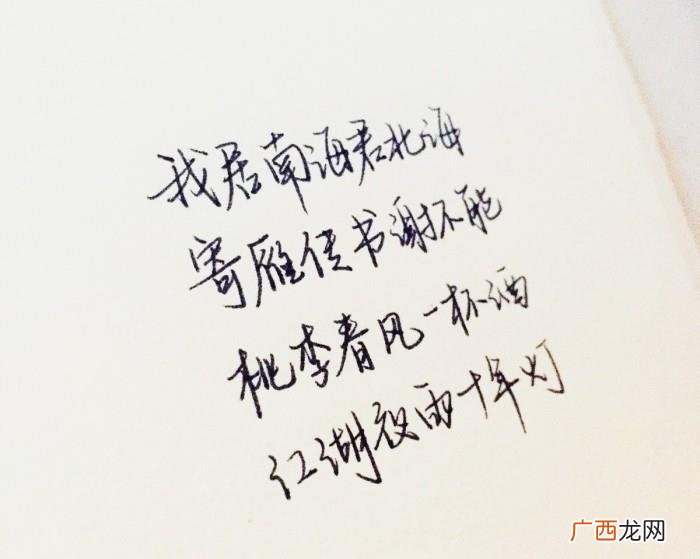 我居南海君北海
寄雁传书谢不能
桃李春风一杯酒
江湖夜雨十年灯
广西龙网